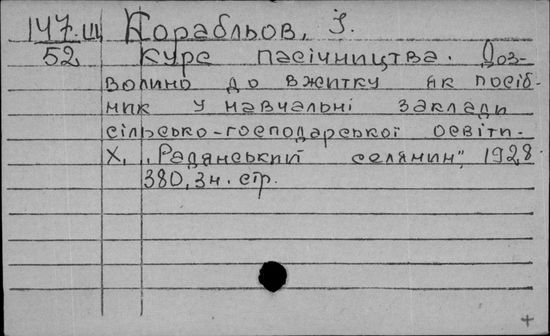 147.Щ Корабльов, І.
52 Курс пасічництва. Доз-
волино до вжитку як посіб-
ник у навчальні заклади
сільсько-господарської освіти.
Х, „Радянський селянин", 1928
380, 3 н. стр.